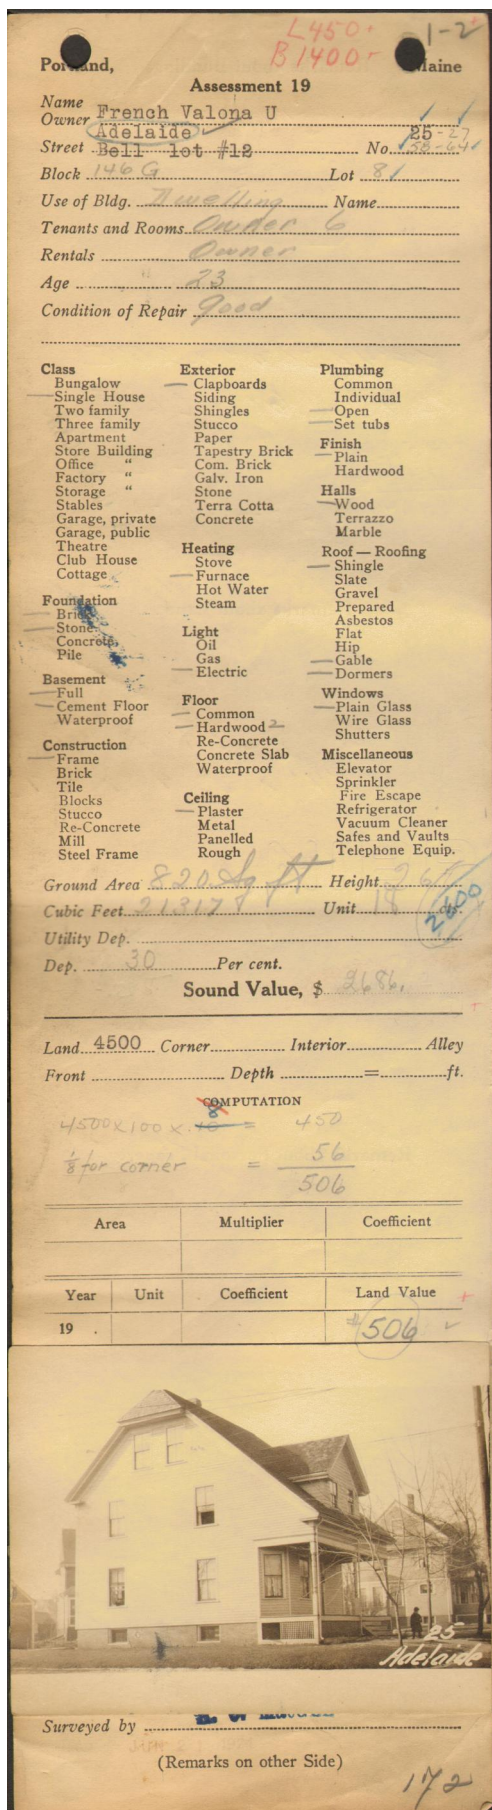 L450.
B1400-
1-2
Portland, Maine
Assessment 19
Name
Owner French Valona U
Adelaide 25-27
Street Bell lot #12 No. 58-64
Block 146 G Lot 8
Use of Bldg. Dwelling Name
Tenants and Rooms Owner 6
Rentals Owner
Age 23
Condition of Repair Good
Class
Bungalow
Single House
Two family
Three family
Apartment
Store Building
Office "
Factory "
Storage "
Stables
Garage, private
Garage, public
Theatre
Club House
Cottage
Foundation
Brick
Stone
Concrete
Pile
Basement
Full
Cement Floor
Waterproof
Construction
Frame
Brick
Tile
Blocks
Stucco
Re-Concrete
Mill
Steel Frame
Exterior
Clapboards
Siding
Shingles
Stucco
Paper
Tapestry Brick
Com. Brick
Galv. Iron
Stone
Terra Cotta
Concrete
Heating
Stove
Furnace
Hot Water
Steam
Light
Oil
Gas
Electric
Floor
Common
Hardwood 2
Re-Concrete
Concrete Slab
Waterproof
Ceiling
Plaster
Metal
Panelled
Rough
Plumbing
Common
Individual
Open
Set tubs
Finish
Plain
Hardwood
Halls
Wood
Terrazzo
Marble
Roof — Roofing
Shingle
Slate
Gravel
Prepared
Asbestos
Flat
Hip
Gable
Dormers
Windows
Plain Glass
Wire Glass
Shutters
Miscellaneous
Elevator
Sprinkler
Fire Escape
Refrigerator
Vacuum Cleaner
Safes and Vaults
Telephone Equip.
Ground Area 820 Sq ft Height 26 ft
Cubic Feet 21317 Unit 18 cts.
2600
Utility Dep.
Dep. 30 Per cent.
Sound Value, $ 2686.
Land 4500 Corner Interior Alley
Front Depth = ft.
COMPUTATION
8
4500 x 100 x .10 = 450
1/8 for corner = 56
506
Area Multiplier Coefficient
Year Unit Coefficient Land Value
19 . $506
25
Adelaide
Surveyed by
(Remarks on other Side)
172